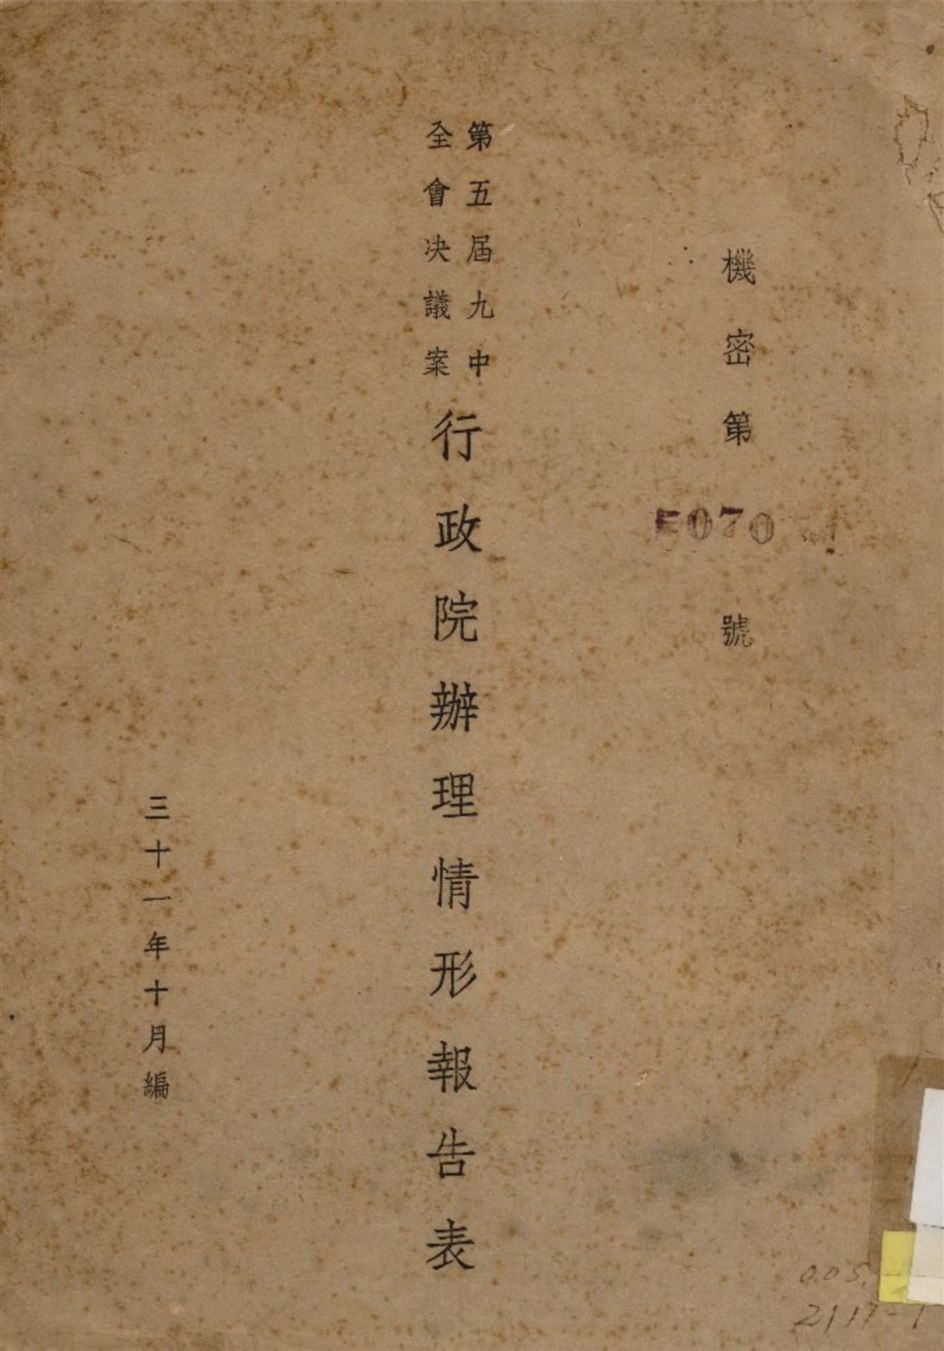 機密第
E070
號
第五屆九中
全會決議案
行政院辦理情形報告表
三十一年十月編
005.
2117-1